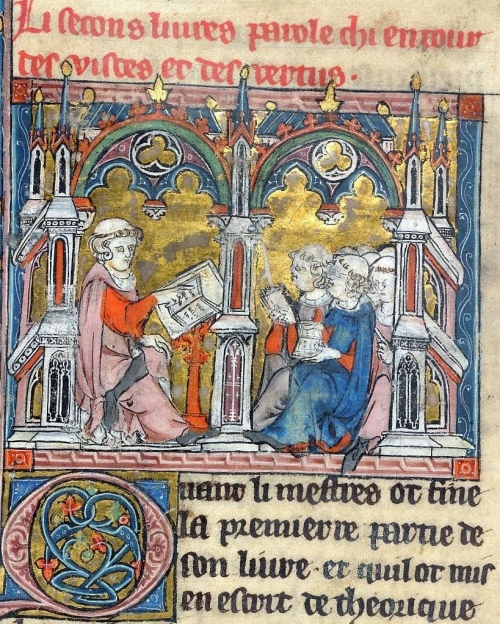 Li secons liures parole chi entour
des visces et des vertus.
Quant li mestres ot fine
la premierre partie de
son liure. et quil ot mis
en escrit de theorique